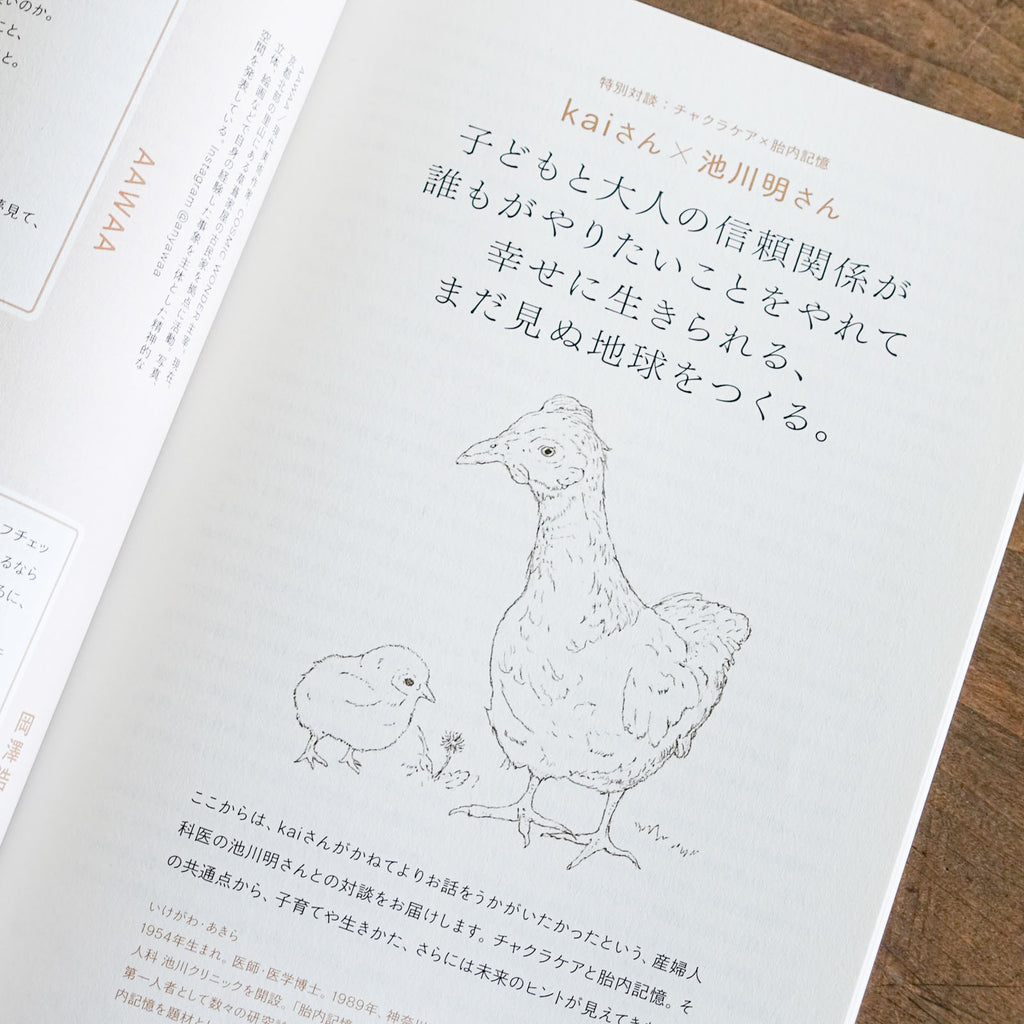 特別対談：チャクラケア×胎内記憶
kaiさん×池川明さん
子どもと大人の信頼関係が
誰もがやりたいことをやれて
幸せに生きられる、
まだ見ぬ地球をつくる。
ここからは、kaiさんがかねてよりお話をうかがいたかったという、産婦人
科医の池川明さんとの対談をお届けします。チャクラケアと胎内記憶。そ
の共通点から、子育てや生きかた、さらには未来のヒントが見えてきま
いけがわ・あきら
1954年生まれ。医師・医学博士。1989年、神奈川
人科 池川クリニックを開設。「胎内記憶
第一人者として数々の研究
内記憶を題材と
AAWAA
AAWAA
京都北部の里山にある茅葺屋の古民家を拠点に活動。写真、
立体、絵画などで自身の経験した事象を主体とした精神的な
空間を発表している。Instagram@anyawaa
いのか。
こと、
と。
夢見て、
フチェッ
るなら
るに、
岡澤